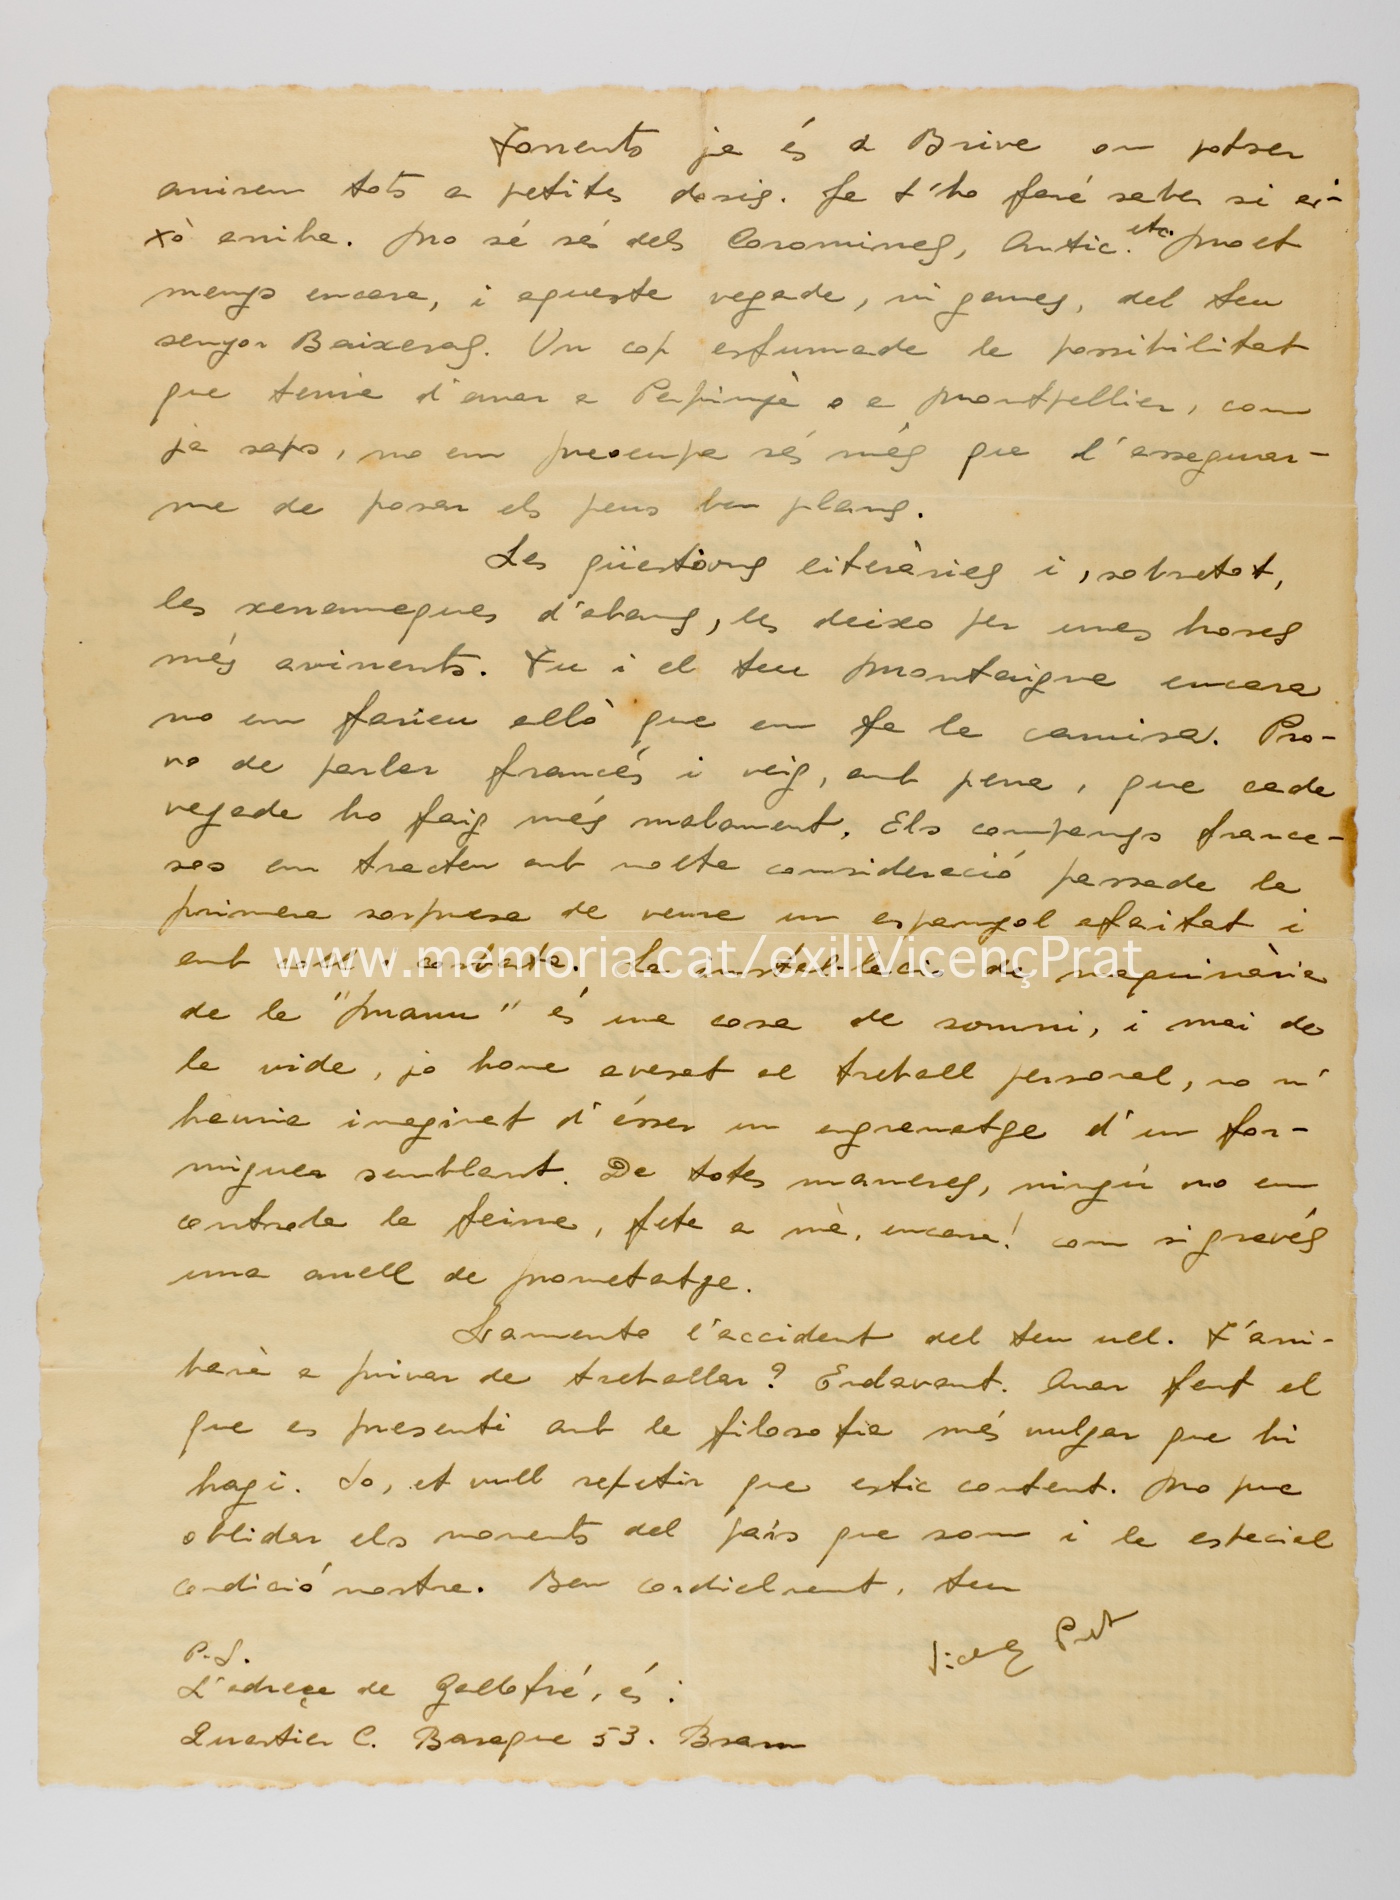 Torrents ja és a Brive on potser
anirem tots a petites dosis. Ja t'ho faré saber si ai-
xò arriba. No sé res dels Coromines, Antic. etc. Molt
menys encara, i aquesta vegada, ni ganes, del teu
senyor Baixeras. Un cop esfumada la possibilitat
que tenia d'anar a Perpinyà o a Montpellier, com
ja saps, no em preocupa res més que d'assegurar-
me de posar els peus ben plans.
Les qüestions literàries i, sobretot,
les xerrameques d'abans, les deixo per unes hores
més avinents. Tu i el teu Montaigne encara
no em farieu allò que em fa la camisa. Pro-
vo de parlar francés i veig, amb pena, que cada
vegada ho faig més malament. Els companys france-
sos em tracten amb molta consideració passada la
primera sorpresa de veure un espanyol afaitat i
amb coll i corbata. La instal·lació de maquinària
de la "Manu" és una cosa de somni, i mai de
la vida, jo home avesat al treball personal, no m'
hauria imaginat d'ésser un engranatge d'un for-
miguer semblant. De totes maneres, ningú no em
controla la feina, feta a mà, encara! com si gravés
una anell de prometatge.
Lamento l'accident del teu ull. T'arri-
barà a privar de treballar? Endavant. Anar fent el
que es presenti amb la filosofia més vulgar que hi
hagi. Jo, et vull repetir que estic content. No puc
oblidar els moments del país que som i la especial
condició nostra. Ben cordialment, teu
Vicenç Prat
P.S.
L'adreça de Gallofré, és:
Quartier C. Baraque 53. Bram
www.memoria.cat/exiliVicençPrat